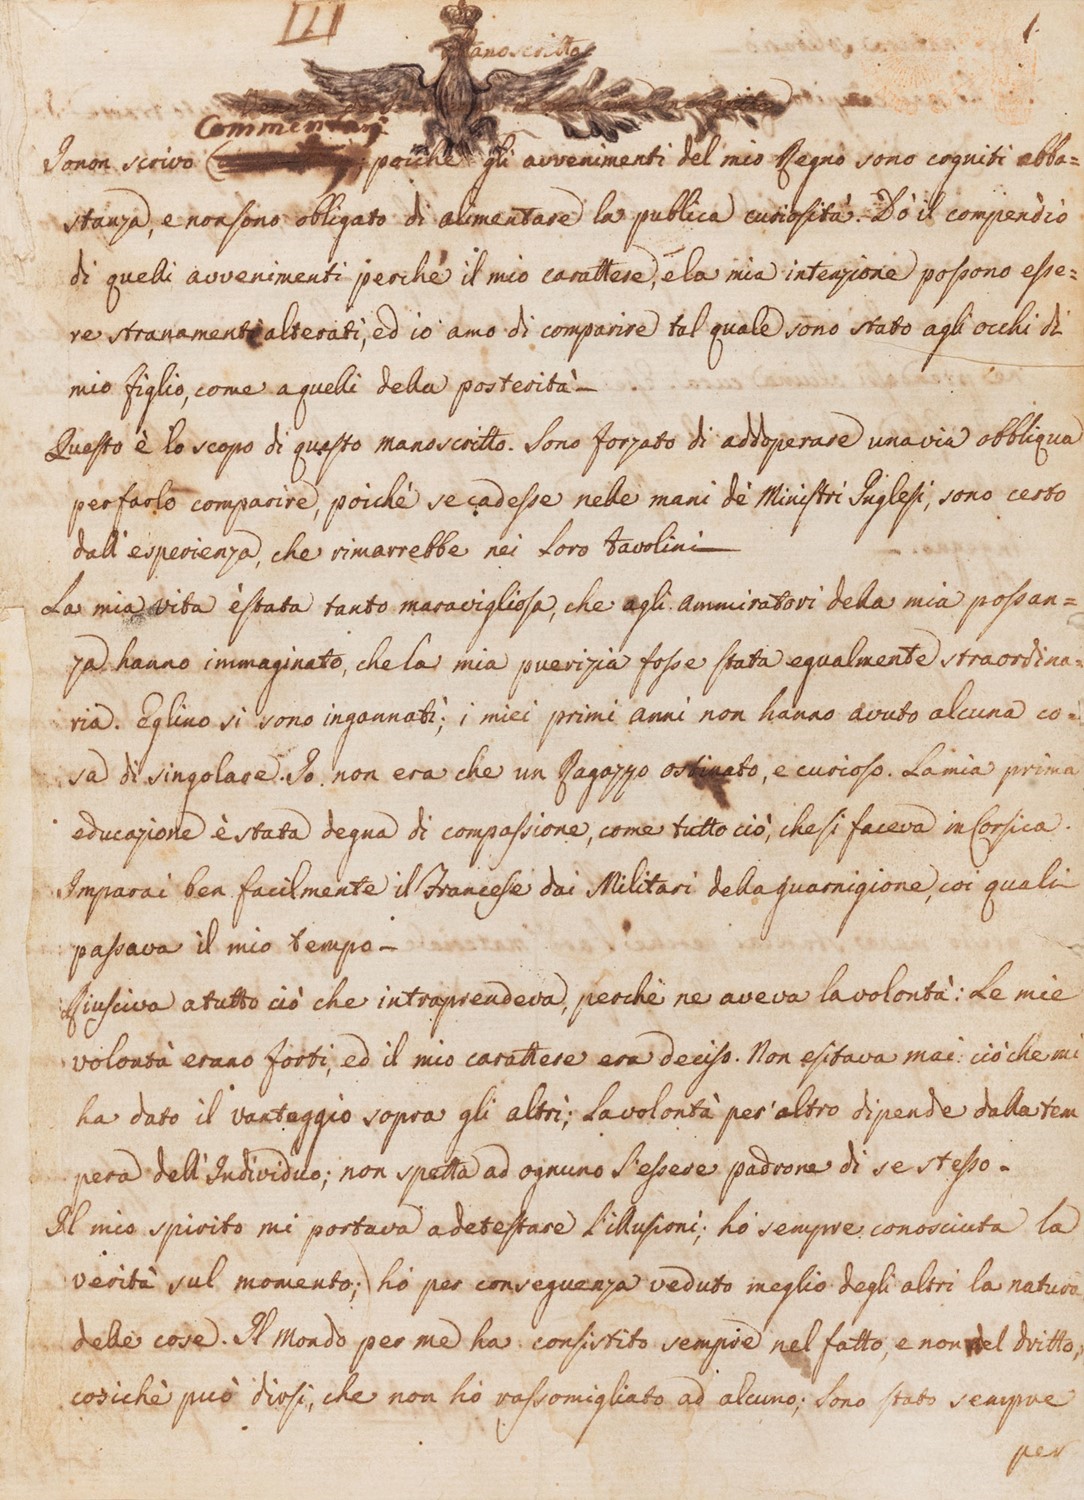 III
1
Manoscritto
Commentarj
Io non scrivo ; poichè gli avvenimenti del mio Regno sono cogniti abba=
stanza, e non sono obligato di alimentare la publica curiosità. Dò il compendio
di quelli avvenimenti perchè il mio carattere, e la mia intenzione possono esse=
re stranamente alterati, ed io amo di comparire tal quale sono stato agli occhi di
mio figlio, come a quelli della posterità —
Questo è lo scopo di questo manoscritto. Sono forzato di addoperare una via obbliqua
per farlo comparire, poichè se cadesse nelle mani dè Ministri Inglesi, sono certo
dall'esperienza, che rimarrebbe nei Loro tavolini —
La mia vita è stata tanto maravigliosa, che agli ammiratori della mia possan=
za hanno immaginato, che la mia puerizia fosse stata egualmente straordina=
ria. Eglino si sono ingannati; i miei primi anni non hanno avuto alcuna co=
sa di singolare. Io non era che un Ragazzo ostinato, e curioso. La mia prima
educazione è stata degna di compassione, come tutto ciò, che si faceva in Corsica.
Imparai ben facilmente il Francese dai Militari della guarnigione, coi quali
passava il mio tempo —
Riusciva a tutto ciò che intraprendeva, perchè ne aveva la volontà: Le mie
volontà erano forti, ed il mio carattere era deciso. Non esitava mai: ciò che mi
ha dato il vantaggio sopra gli altri; La volontà per altro dipende dalla tem
pera dell'Individuo; non spetta ad ognuno l'essere padrone di se stesso —
Il mio spirito mi portava a detestare l'illusioni; hò sempre conosciuta la
verità sul momento; hò per conseguenza veduto meglio degli altri la natura
delle cose. Il Mondo per me ha consistito sempre nel fatto, e non del dritto,
cosichè può dirsi, che non hò rassomigliato ad alcuno; Sono stato sempre
per